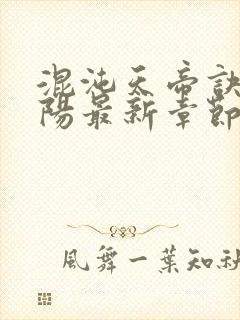 混沌天帝訣
陽最新章節
風舞一葉知秋